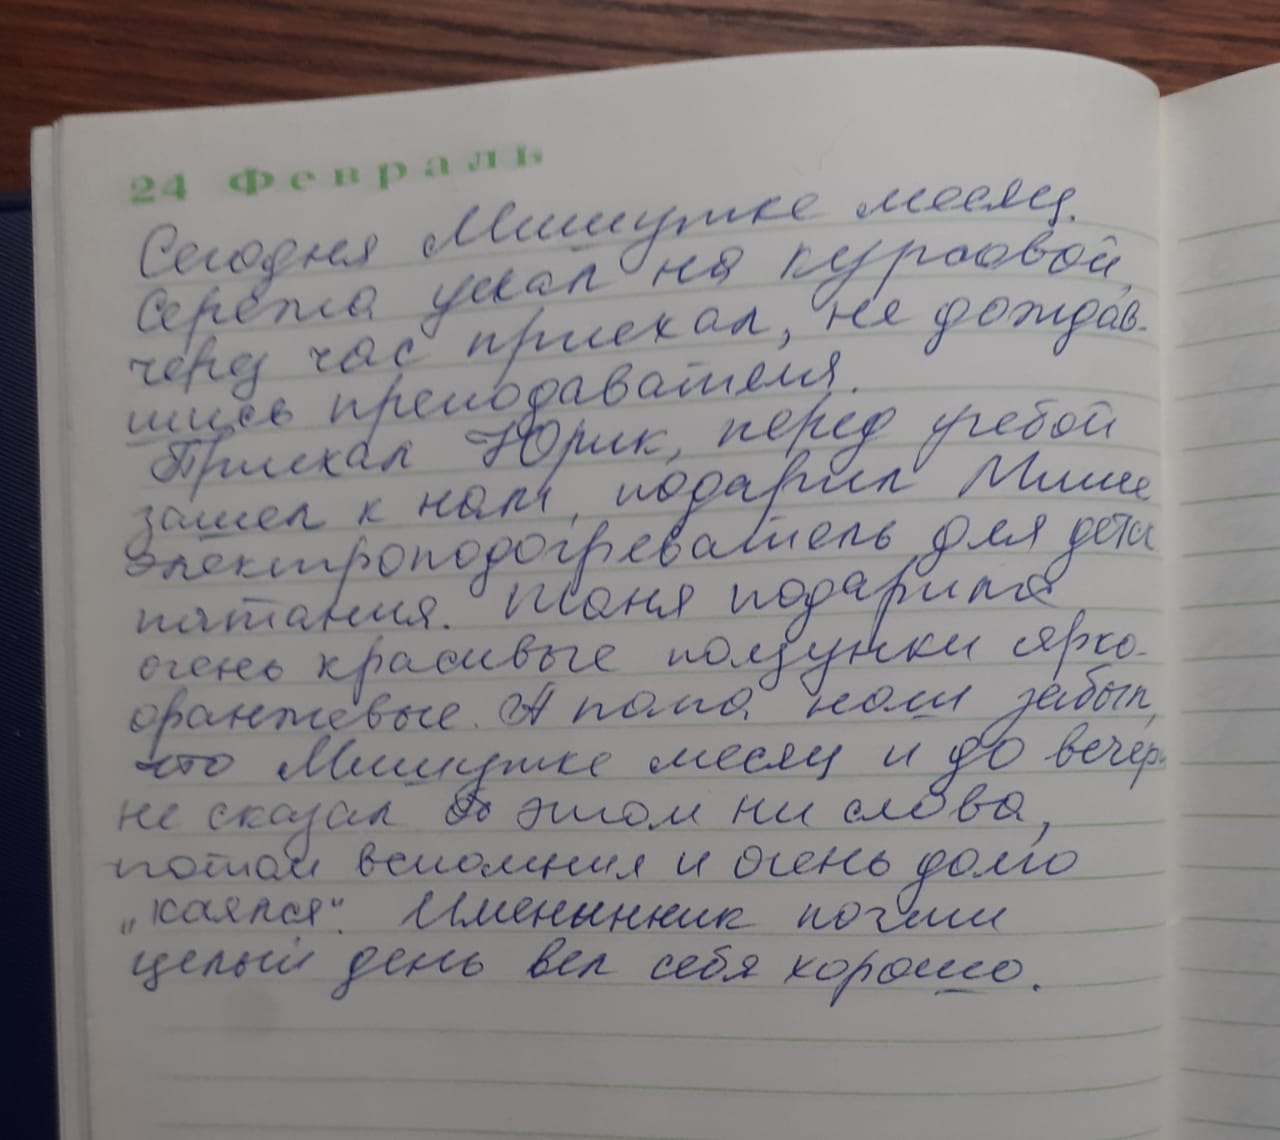 24 Февраль
Сегодня Мишутке месяц.
Сережа уехал на курсовой,
через час приехал, не дождав-
шись преподавателя.
Приехал Юрик, перед учебой
зашел к нам, подарил Мише
электроподогреватель для детск
питания. Таня подарила
очень красивые ползунки ярко-
оранжевые. А папа наш забыл,
что Мишутке месяц и до вечера
не сказал об этом ни слова,
потом вспомнил и очень долго
„каялся“. Именинник почти
целый день вел себя хорошо.